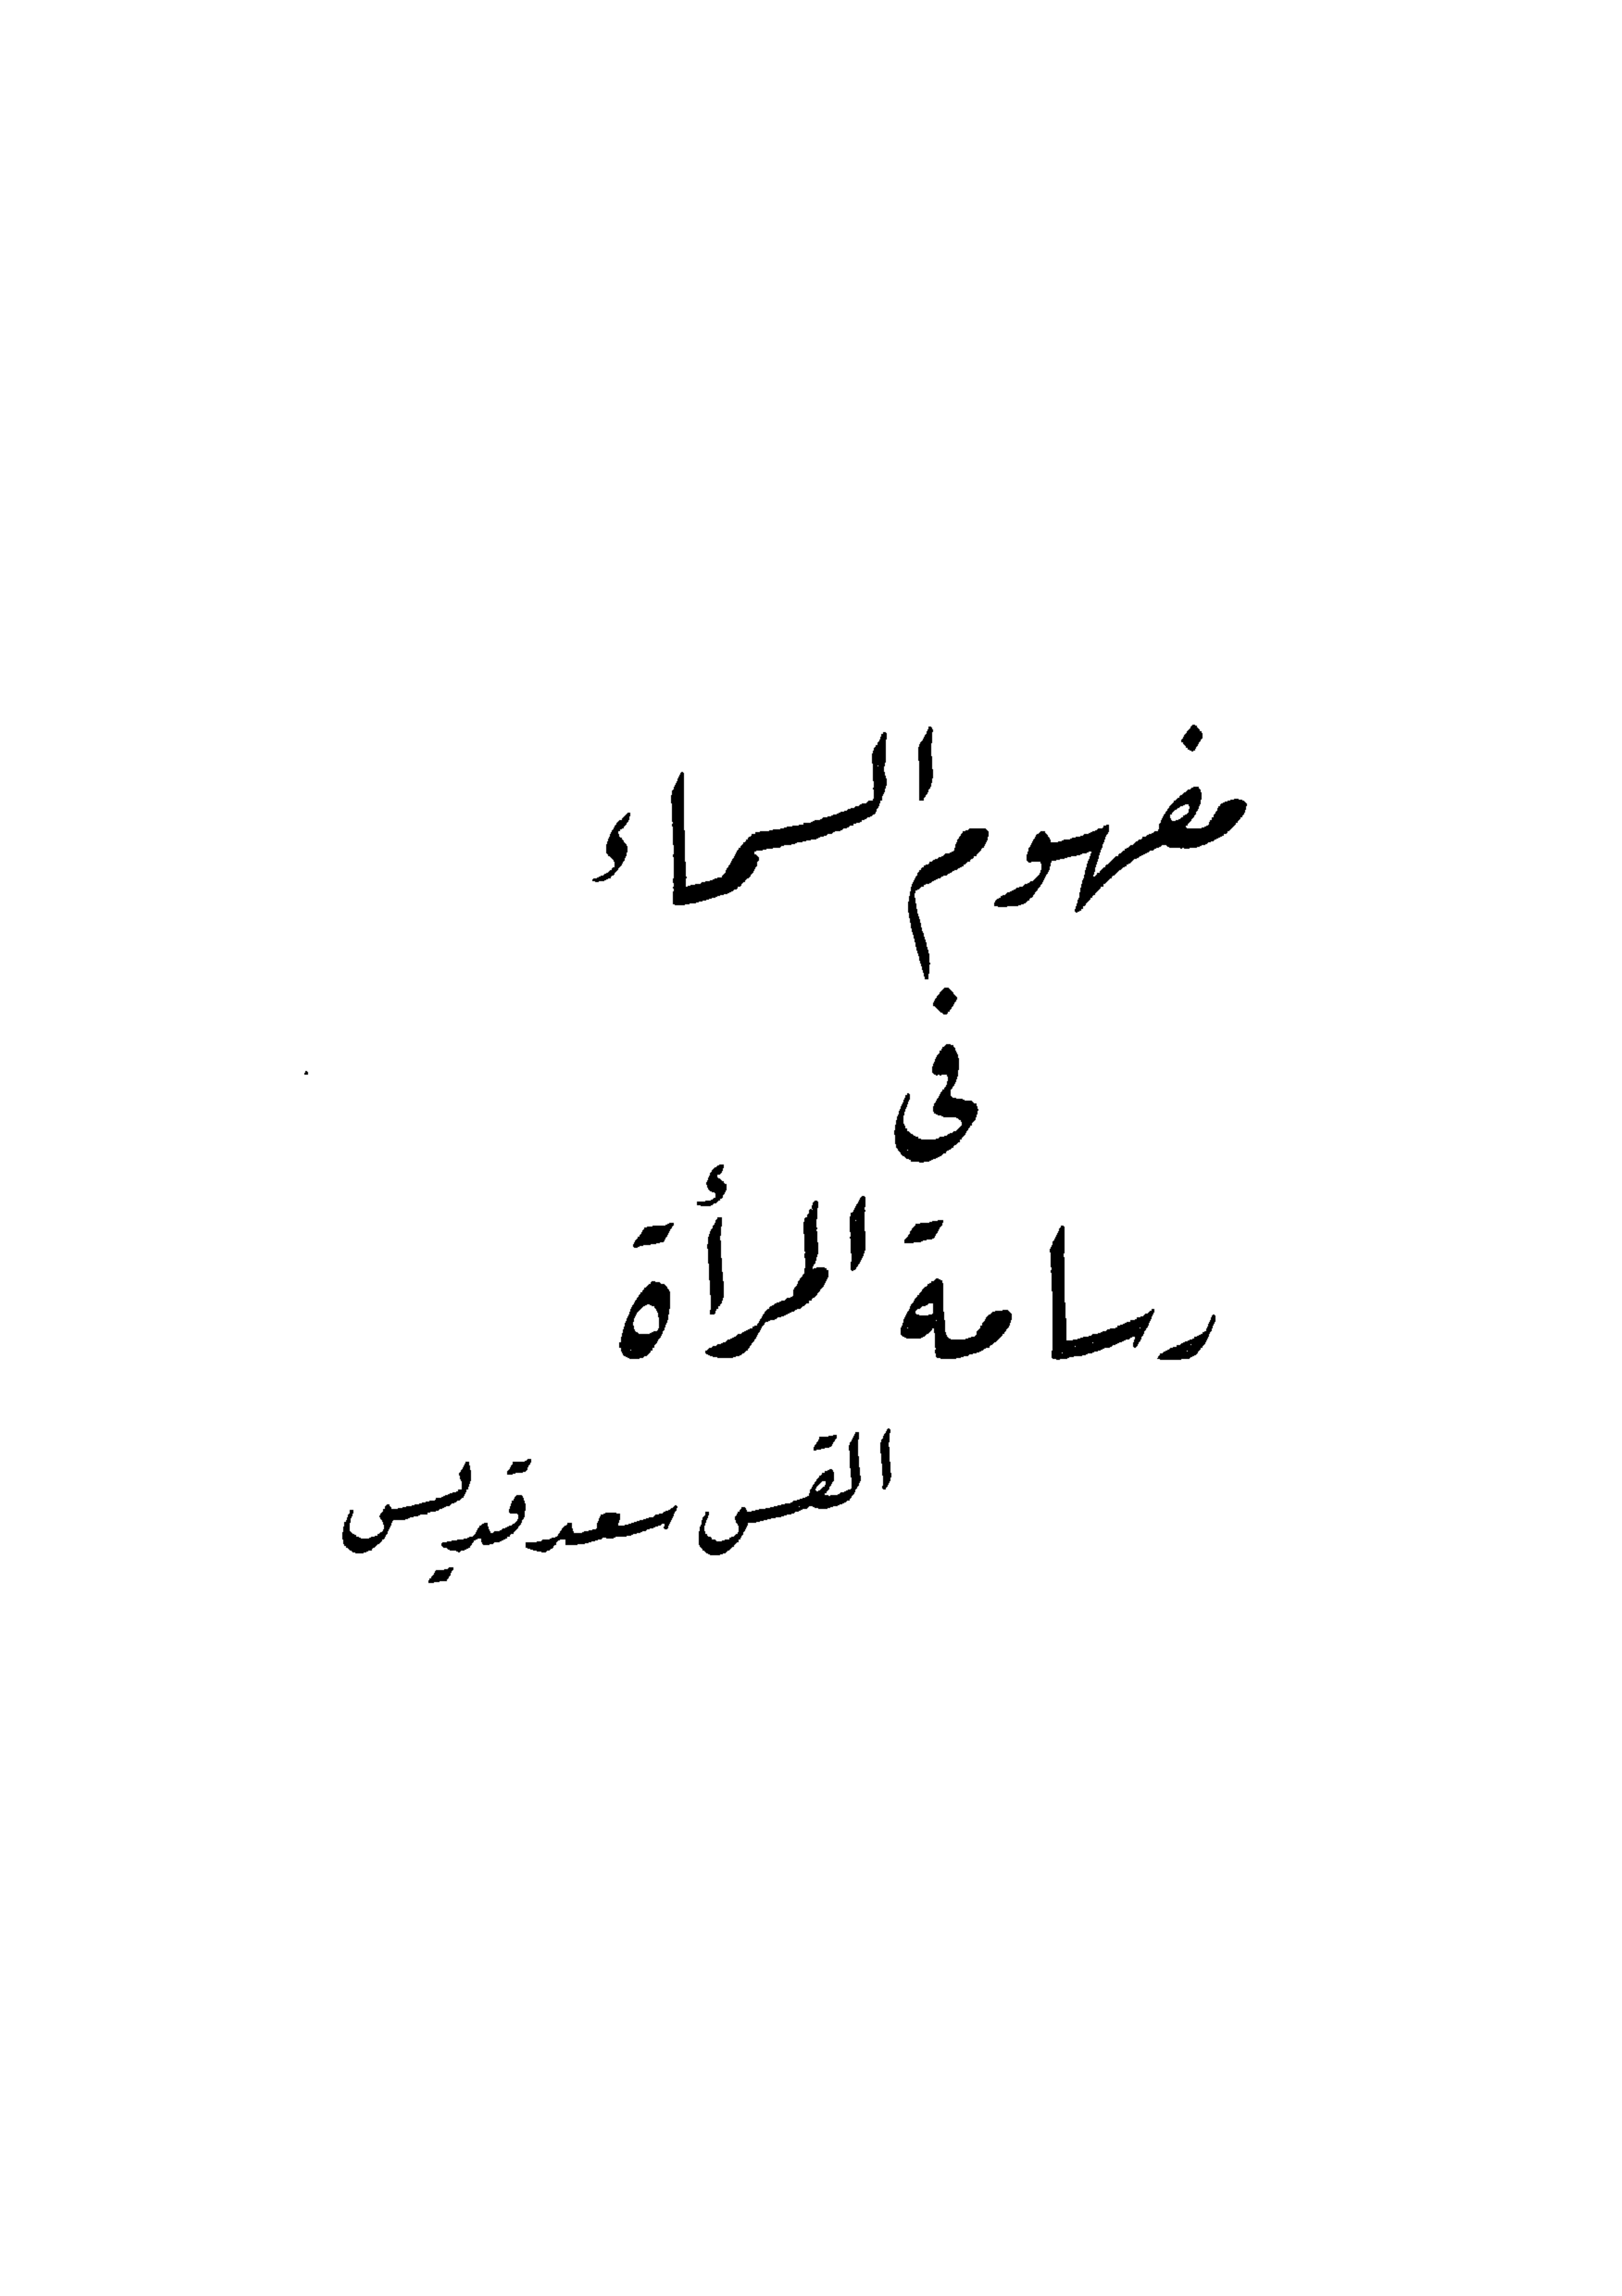 مفهوم السماء
فى
رسامة المرأة
القس سعد قديس